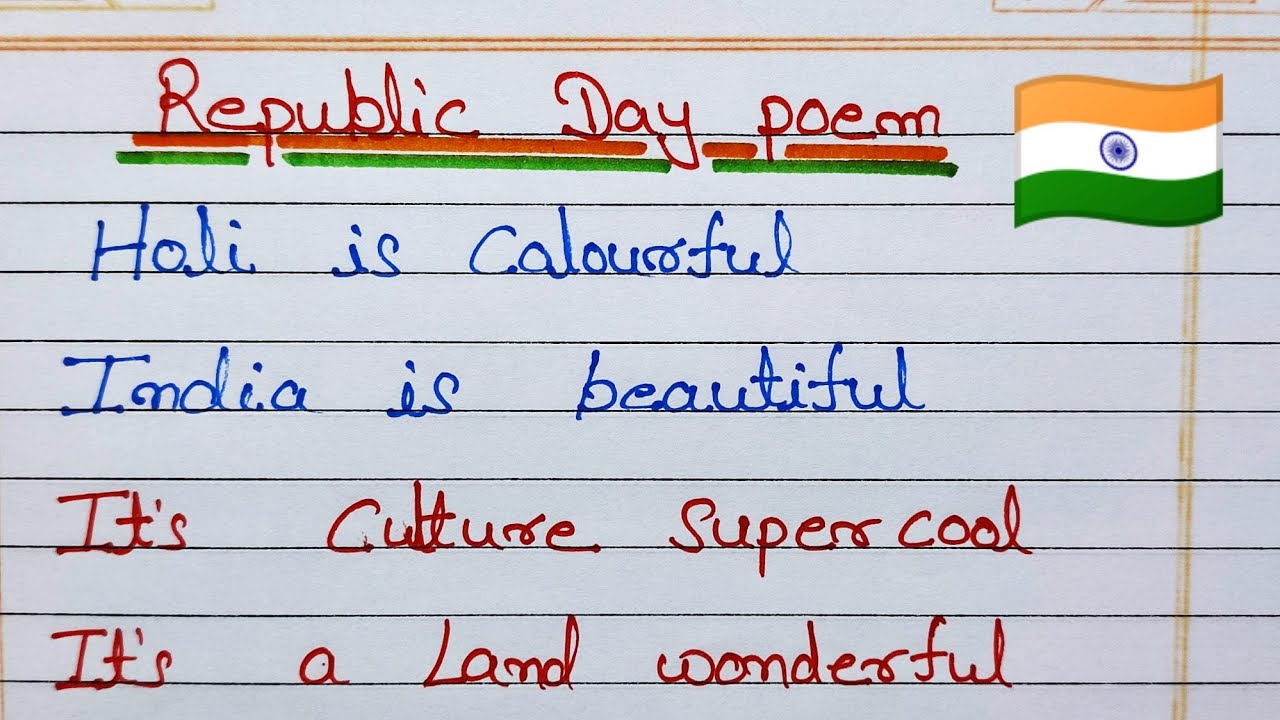 Republic Day poem
Holi is Calourful
India is beautiful
It's Culture Super cool
It's a Land wonderful